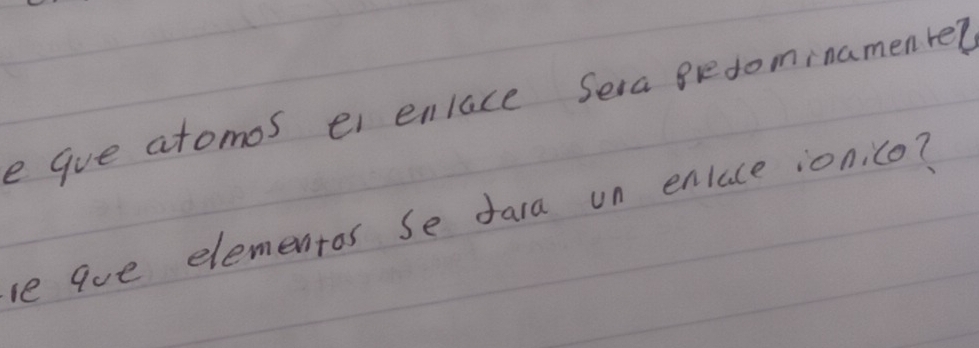 e que atomos el enlace sera predominamente?
re que elementos se dara un enlace ionico?